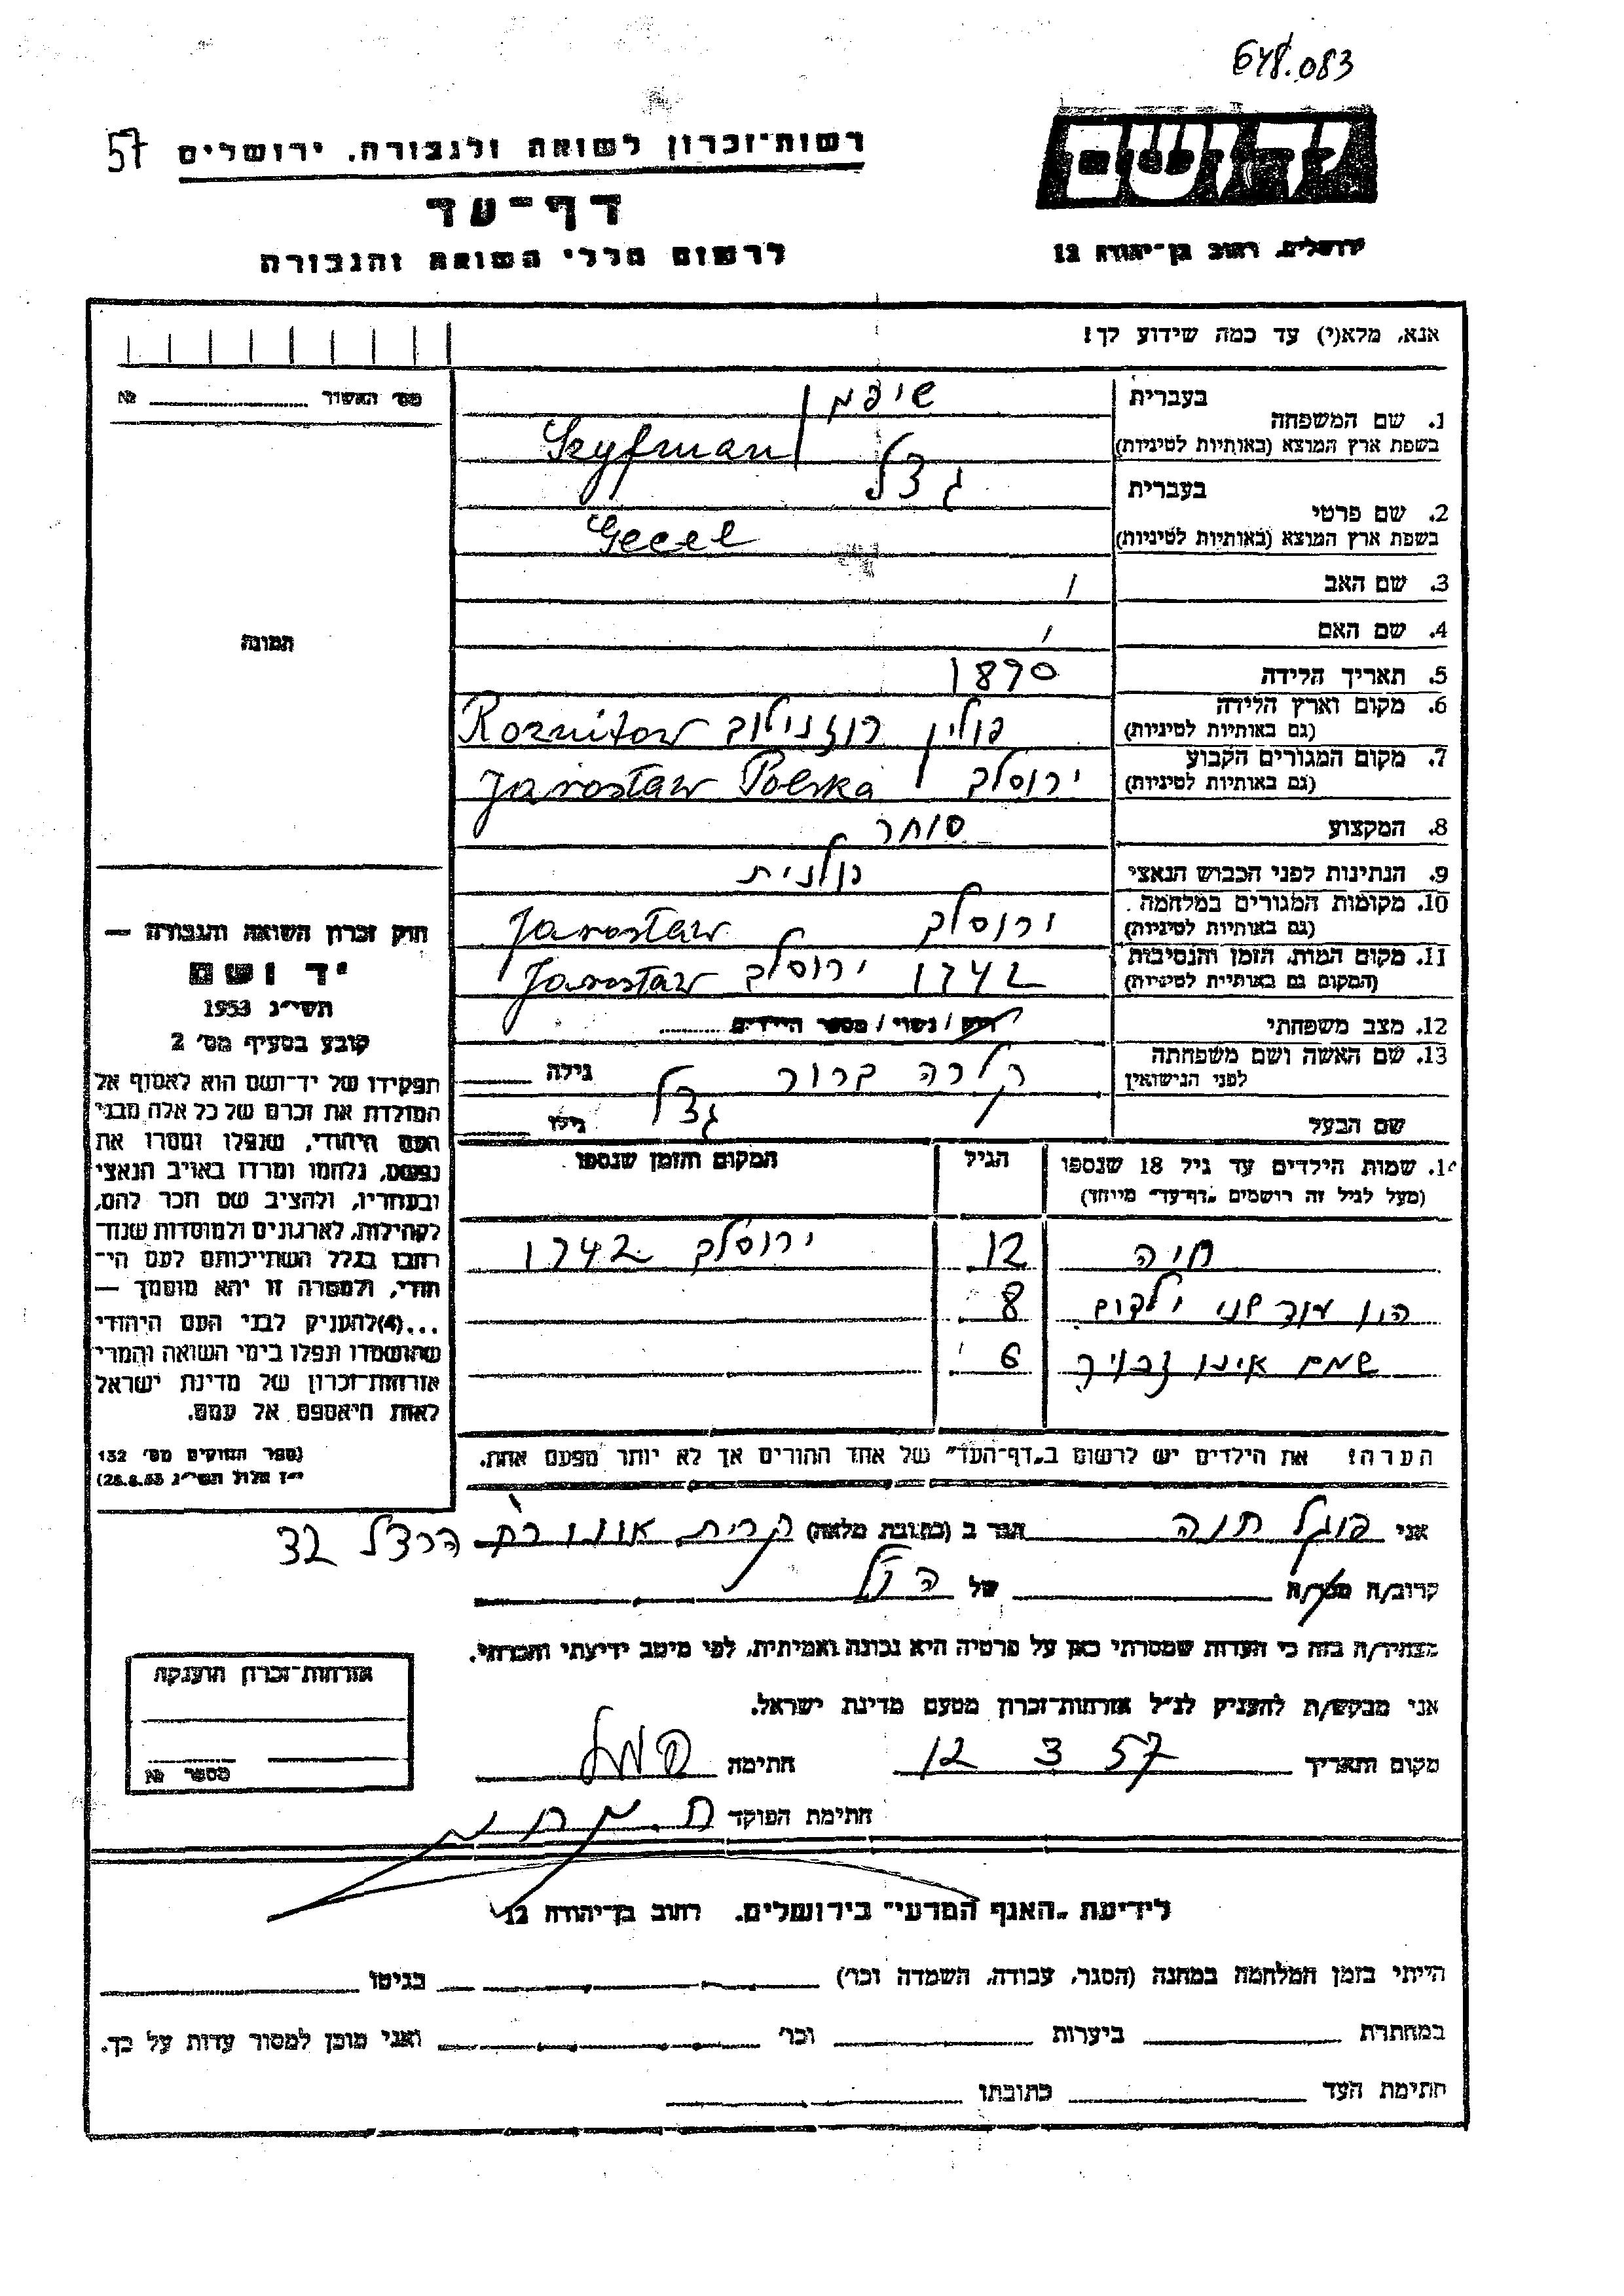 648.083
57
רשות־זכרון לשואה ולגבורה, ירושלים
יד ושם
דף־עד
ירושלים, רחוב בן־יהודה 12
לרשום חללי השואה והגבורה
אנא, מלא(י) עד כמה שידוע לך!
מס׳ האשור № ........
בעברית שיפמן
1. שם המשפחה
בשפת ארץ המוצא (באותיות לטיניות) Szyfman
בעברית גצל
2. שם פרטי
בשפת ארץ המוצא (באותיות לטיניות) Gecel
3. שם האב /
4. שם האם /
תמונה
5. תאריך הלידה 1890
6. מקום וארץ הלידה
(גם באותיות לטיניות) פולין
7. מקום המגורים הקבוע
(גם באותיות לטיניות) ירוסלב Jarosław Polska
8. המקצוע סוחר
9. הנתינות לפני הכבוש הנאצי פולנית
10. מקומות המגורים במלחמה
(גם באותיות לטיניות) ירוסלב Jarosław
11. מקום המות, הזמן והנסיבות
(המקום גם באותיות לטיניות) 1942 ירוסלב Jarosław
12. מצב משפחתי רווק / נשוי / מספר הילדים ........
13. שם האשה ושם משפחתה
לפני הנישואין קלרה גילה
שם הבעל גצל גילו
חוק זכרון השואה והגבורה —
יד ושם
תשי״ג 1953
קובע בסעיף מס׳ 2
תפקידו של יד־ושם הוא לאסוף אל
המולדת את זכרם של כל אלה מבני
העם היהודי, שנפלו ומסרו את
נפשם, נלחמו ומרדו באויב הנאצי
ובעוזריו, ולהציב שם וזכר להם,
לקהילות, לארגונים ולמוסדות שנח־
רבו בגלל השתייכותם לעם היה־
ודי, ולמטרה זו יהא מוסמך —
...(4)להעניק לבני העם היהודי
שהושמדו ונפלו בימי השואה והמרי
אזרחות־זכרון של מדינת ישראל
לאות היאספם אל עמם.
(ספר החוקים מס׳ 132
י״ז אלול תשי״ג 28.8.53)
14. שמות הילדים עד גיל 18 שנספו הגיל המקום והזמן שנספו
(מעל לגיל זה רושמים „דף־עד״ מייחד)
חיה 12 ירוסלב 1942
היו עוד שני ילדים 8
שמם אינו זכור 6
הערה! את הילדים יש לרשום ב„דף־העד״ של אחד ההורים אך לא יותר מפעם אחת.
אני פוגל חנה הגר ב (כתובת מלאה) קרית אונו הרצל 32
קרוב/ה מכר/ה של הנ״ל
מצהיר/ה בזה כי העדות שמסרתי כאן על פרטיה היא נכונה ואמיתית, לפי מיטב ידיעתי והכרתי.
אני מבקש/ת להעניק לנ״ל אזרחות־זכרון מטעם מדינת ישראל.
מקום ותאריך 12 3 57 חתימה
חתימת הפוקד
אזרחות־זכרון הוענקה
מספר №
לידיעת „האגף המדעי״ בירושלים, רחוב בן־יהודה 12
הייתי בזמן המלחמה במחנה (הסגר, עבודה, השמדה וכו׳) בגיטו
במחתרת ביערות וכו׳ ואני מוכן למסור עדות על כך.
חתימת העד כתובתו